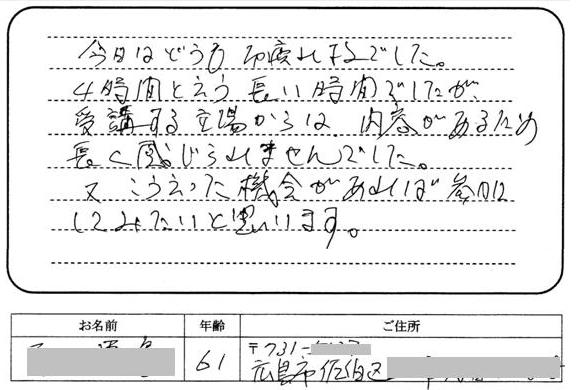 今日はどうも お疲れさまでした。
4時間と云う 長い時間でしたが
受講する立場からは 内容があるため
長く感じられませんでした。
又 こういった機会があれば 参加
してみたいと思います。
お名前 年齢 ご住所
61 〒731-
広島市佐伯区